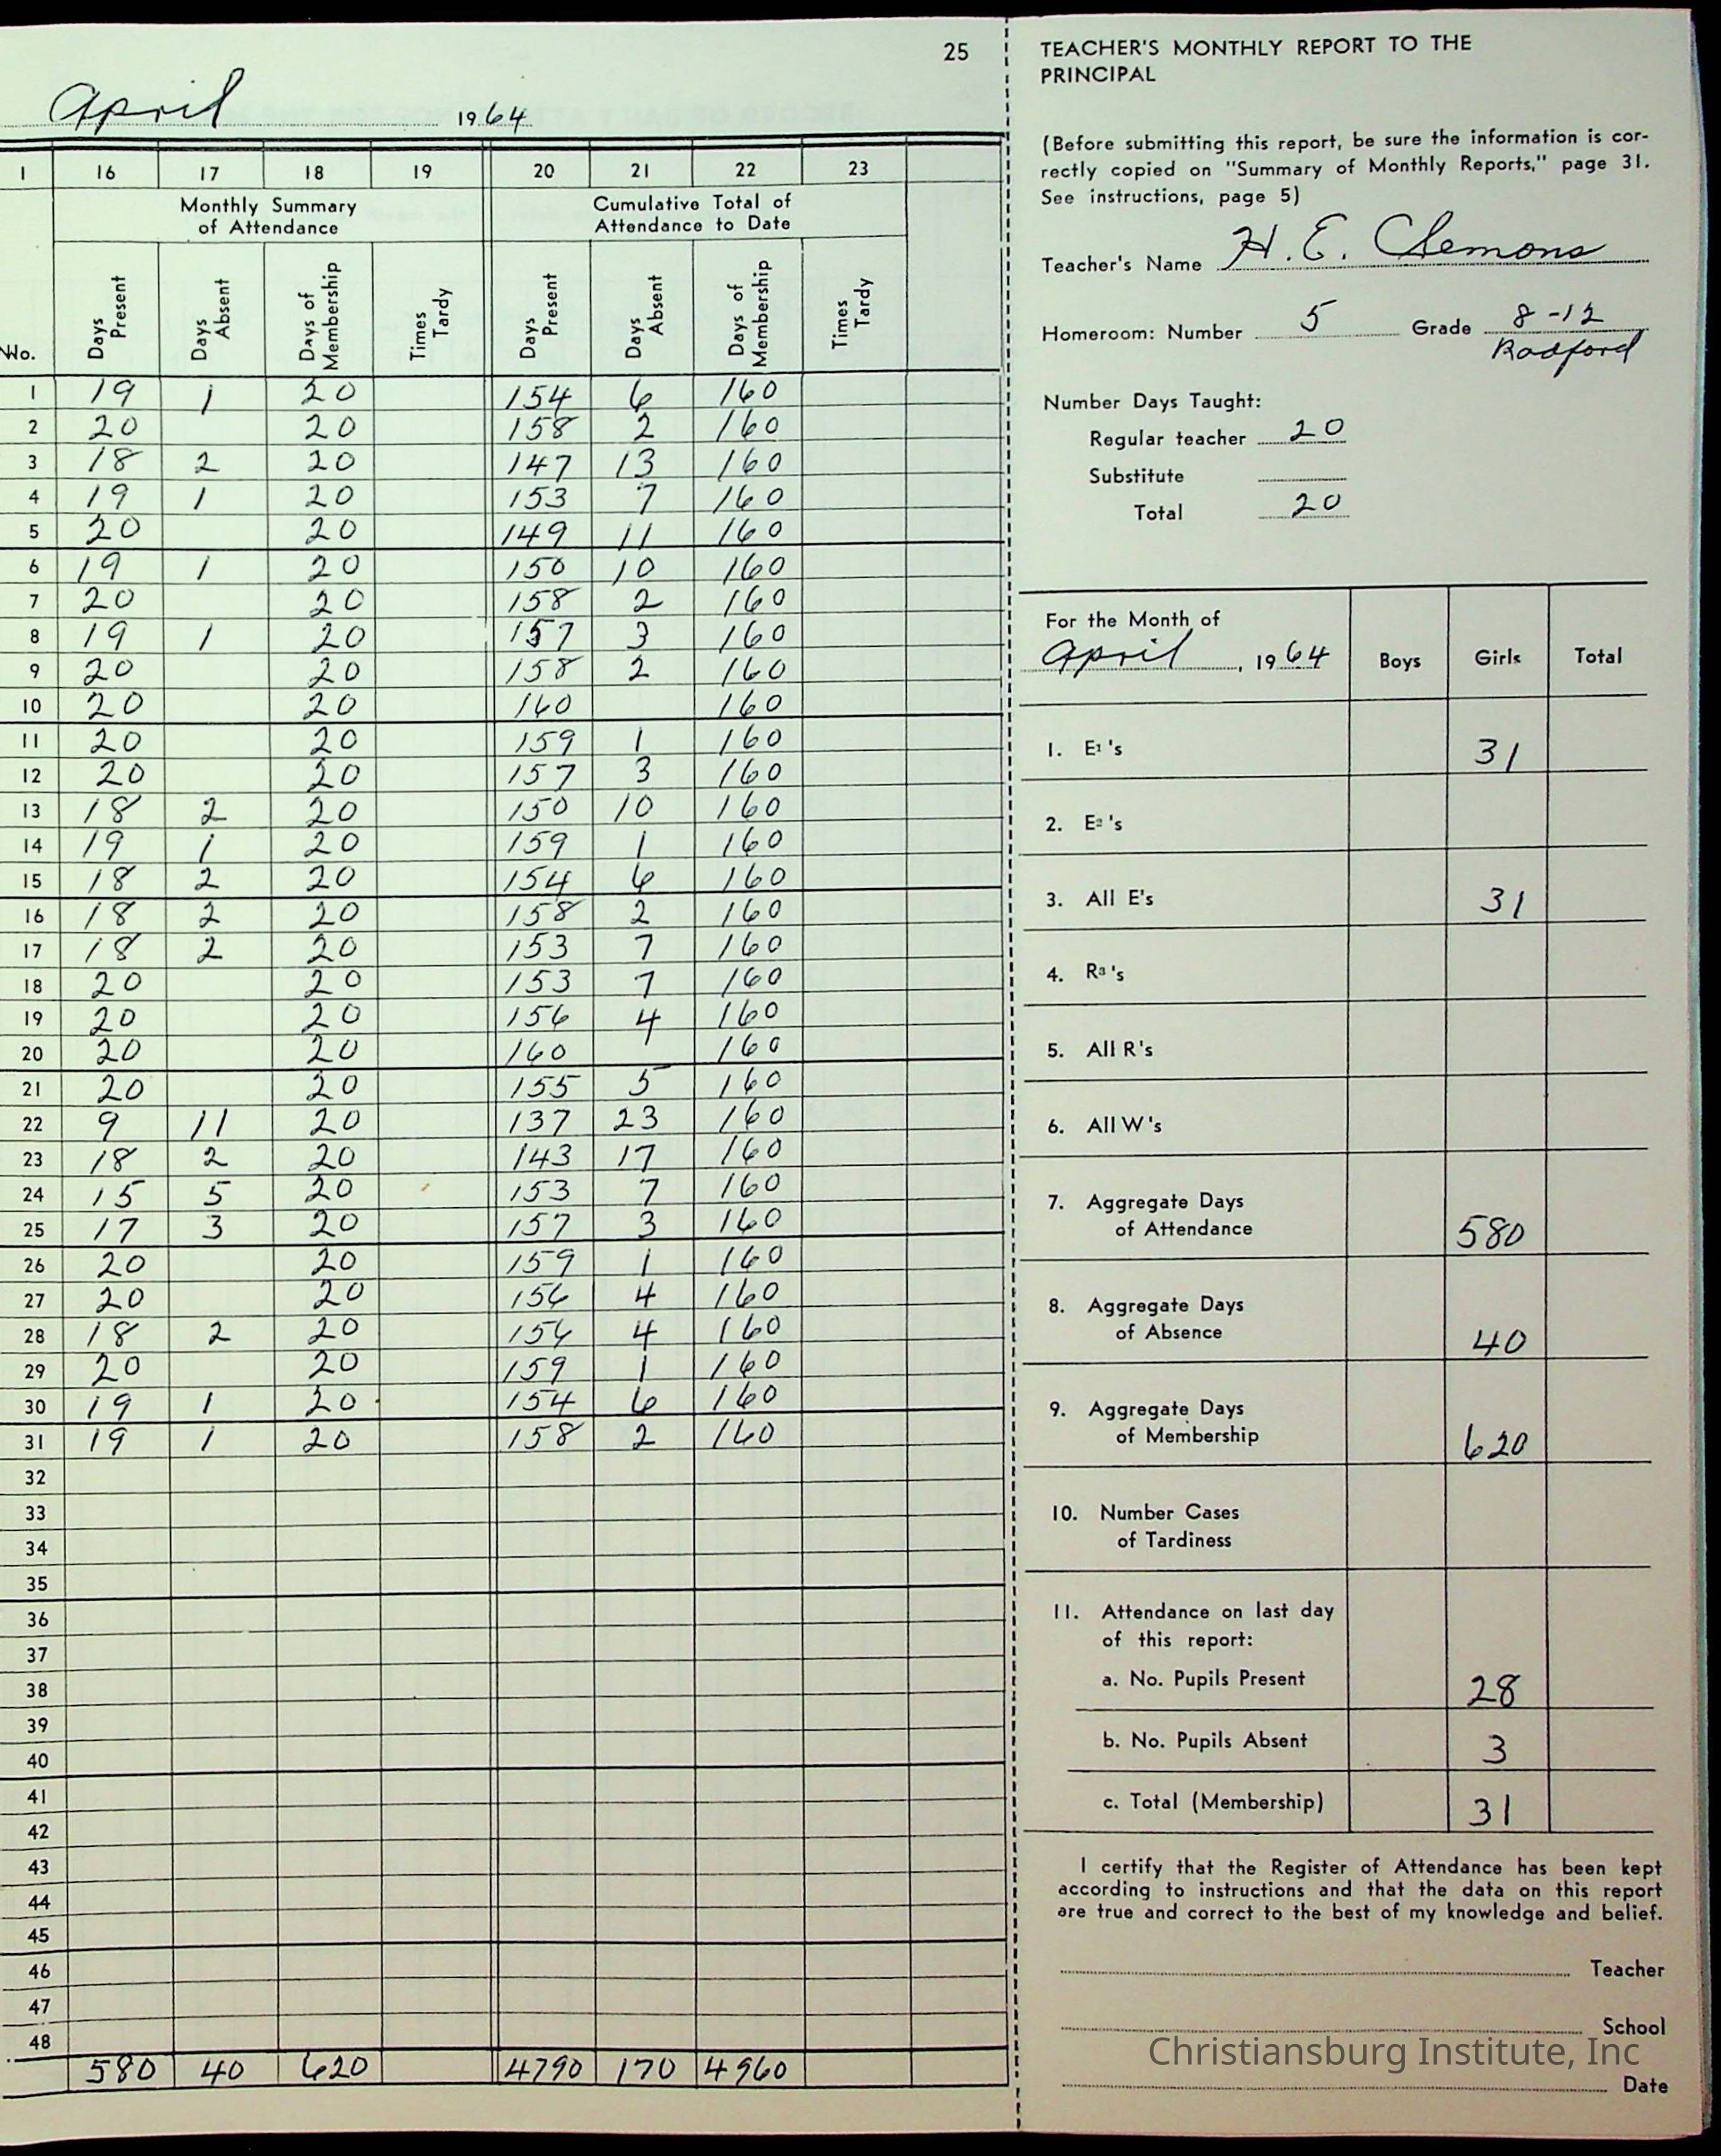 25
April 1964
1 16 17 18 19 20 21 22 23
Monthly Summary of Attendance Cumulative Total of Attendance to Date
No. Days Present Days Absent Days of Membership Times Tardy Days Present Days Absent Days of Membership Times Tardy
1 19 1 20 154 6 160
2 20 20 158 2 160
3 18 2 20 147 13 160
4 19 1 20 153 7 160
5 20 20 149 11 160
6 19 1 20 150 10 160
7 20 20 158 2 160
8 19 1 20 157 3 160
9 20 20 158 2 160
10 20 20 160 160
11 20 20 159 1 160
12 20 20 157 3 160
13 18 2 20 150 10 160
14 19 1 20 159 1 160
15 18 2 20 154 6 160
16 18 2 20 158 2 160
17 18 2 20 153 7 160
18 20 20 153 7 160
19 20 20 156 4 160
20 20 20 160 160
21 20 20 155 5 160
22 9 11 20 137 23 160
23 18 2 20 143 17 160
24 15 5 20 153 7 160
25 17 3 20 157 3 160
26 20 20 159 1 160
27 20 20 156 4 160
28 18 2 20 156 4 160
29 20 20 159 1 160
30 19 1 20 154 6 160
31 19 1 20 158 2 160
32
33
34
35
36
37
38
39
40
41
42
43
44
45
46
47
48
580 40 620 4790 170 4960
TEACHER'S MONTHLY REPORT TO THE
PRINCIPAL
(Before submitting this report, be sure the information is cor-
rectly copied on "Summary of Monthly Reports," page 31.
See instructions, page 5)
Teacher's Name H. E. Clemons
Homeroom: Number 5 Grade 8-12
Radford
Number Days Taught:
Regular teacher 20
Substitute
Total 20
For the Month of
April, 1964 Boys Girls Total
1. E1's 31
2. E2's
3. All E's 31
4. R3's
5. All R's
6. All W's
7. Aggregate Days
of Attendance 580
8. Aggregate Days
of Absence 40
9. Aggregate Days
of Membership 620
10. Number Cases
of Tardiness
11. Attendance on last day
of this report:
a. No. Pupils Present 28
b. No. Pupils Absent 3
c. Total (Membership) 31
I certify that the Register of Attendance has been kept
according to instructions and that the data on this report
are true and correct to the best of my knowledge and belief.
Teacher
School
Christiansburg Institute, Inc
Date